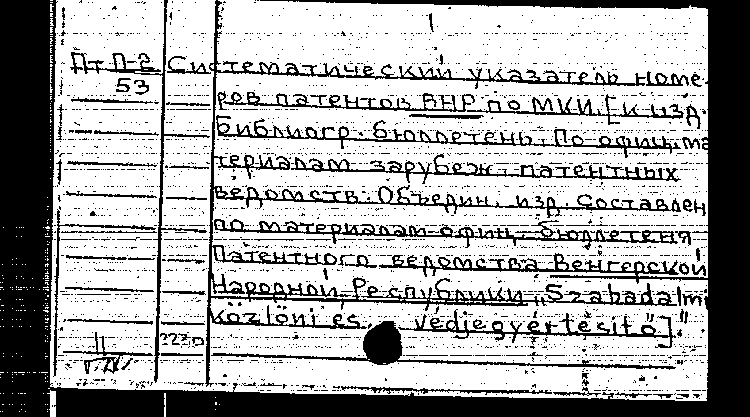 Пт П-2 Систематический указатель номе-
53 ров патентов ВНР по МКИ. [К изд.
Библиогр. бюллетень. По офиц. ма
териалам зарубеж. патентных
ведомств. Объедин. изд. Составлен
по материалам офиц. бюллетеня
Патентного ведомства Венгерской
Народной Республики „Szabadalmi
közlöni es védjegyertesitö]."